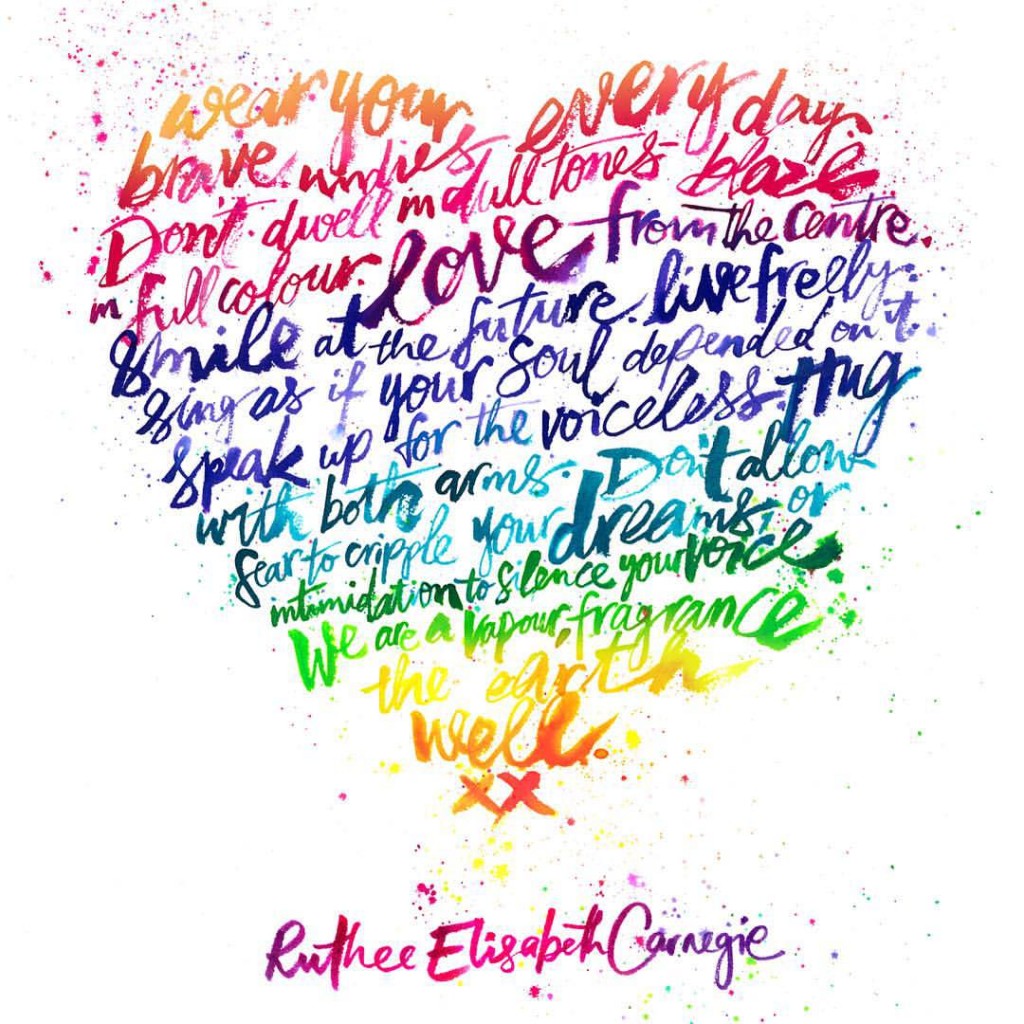 wear your every day.
brave undies
Don't dwell in dull tones blaze
in full colour. love from the centre.
Smile at the future. live freely.
Sing as if your soul depended on it.
Speak up for the voiceless. Hug
with both arms. Don't allow
fear to cripple your dreams, or
intimidation to silence your voice
We are a vapour, fragrance
the earth
well.
xx
Ruthee Elisabeth Carnegie